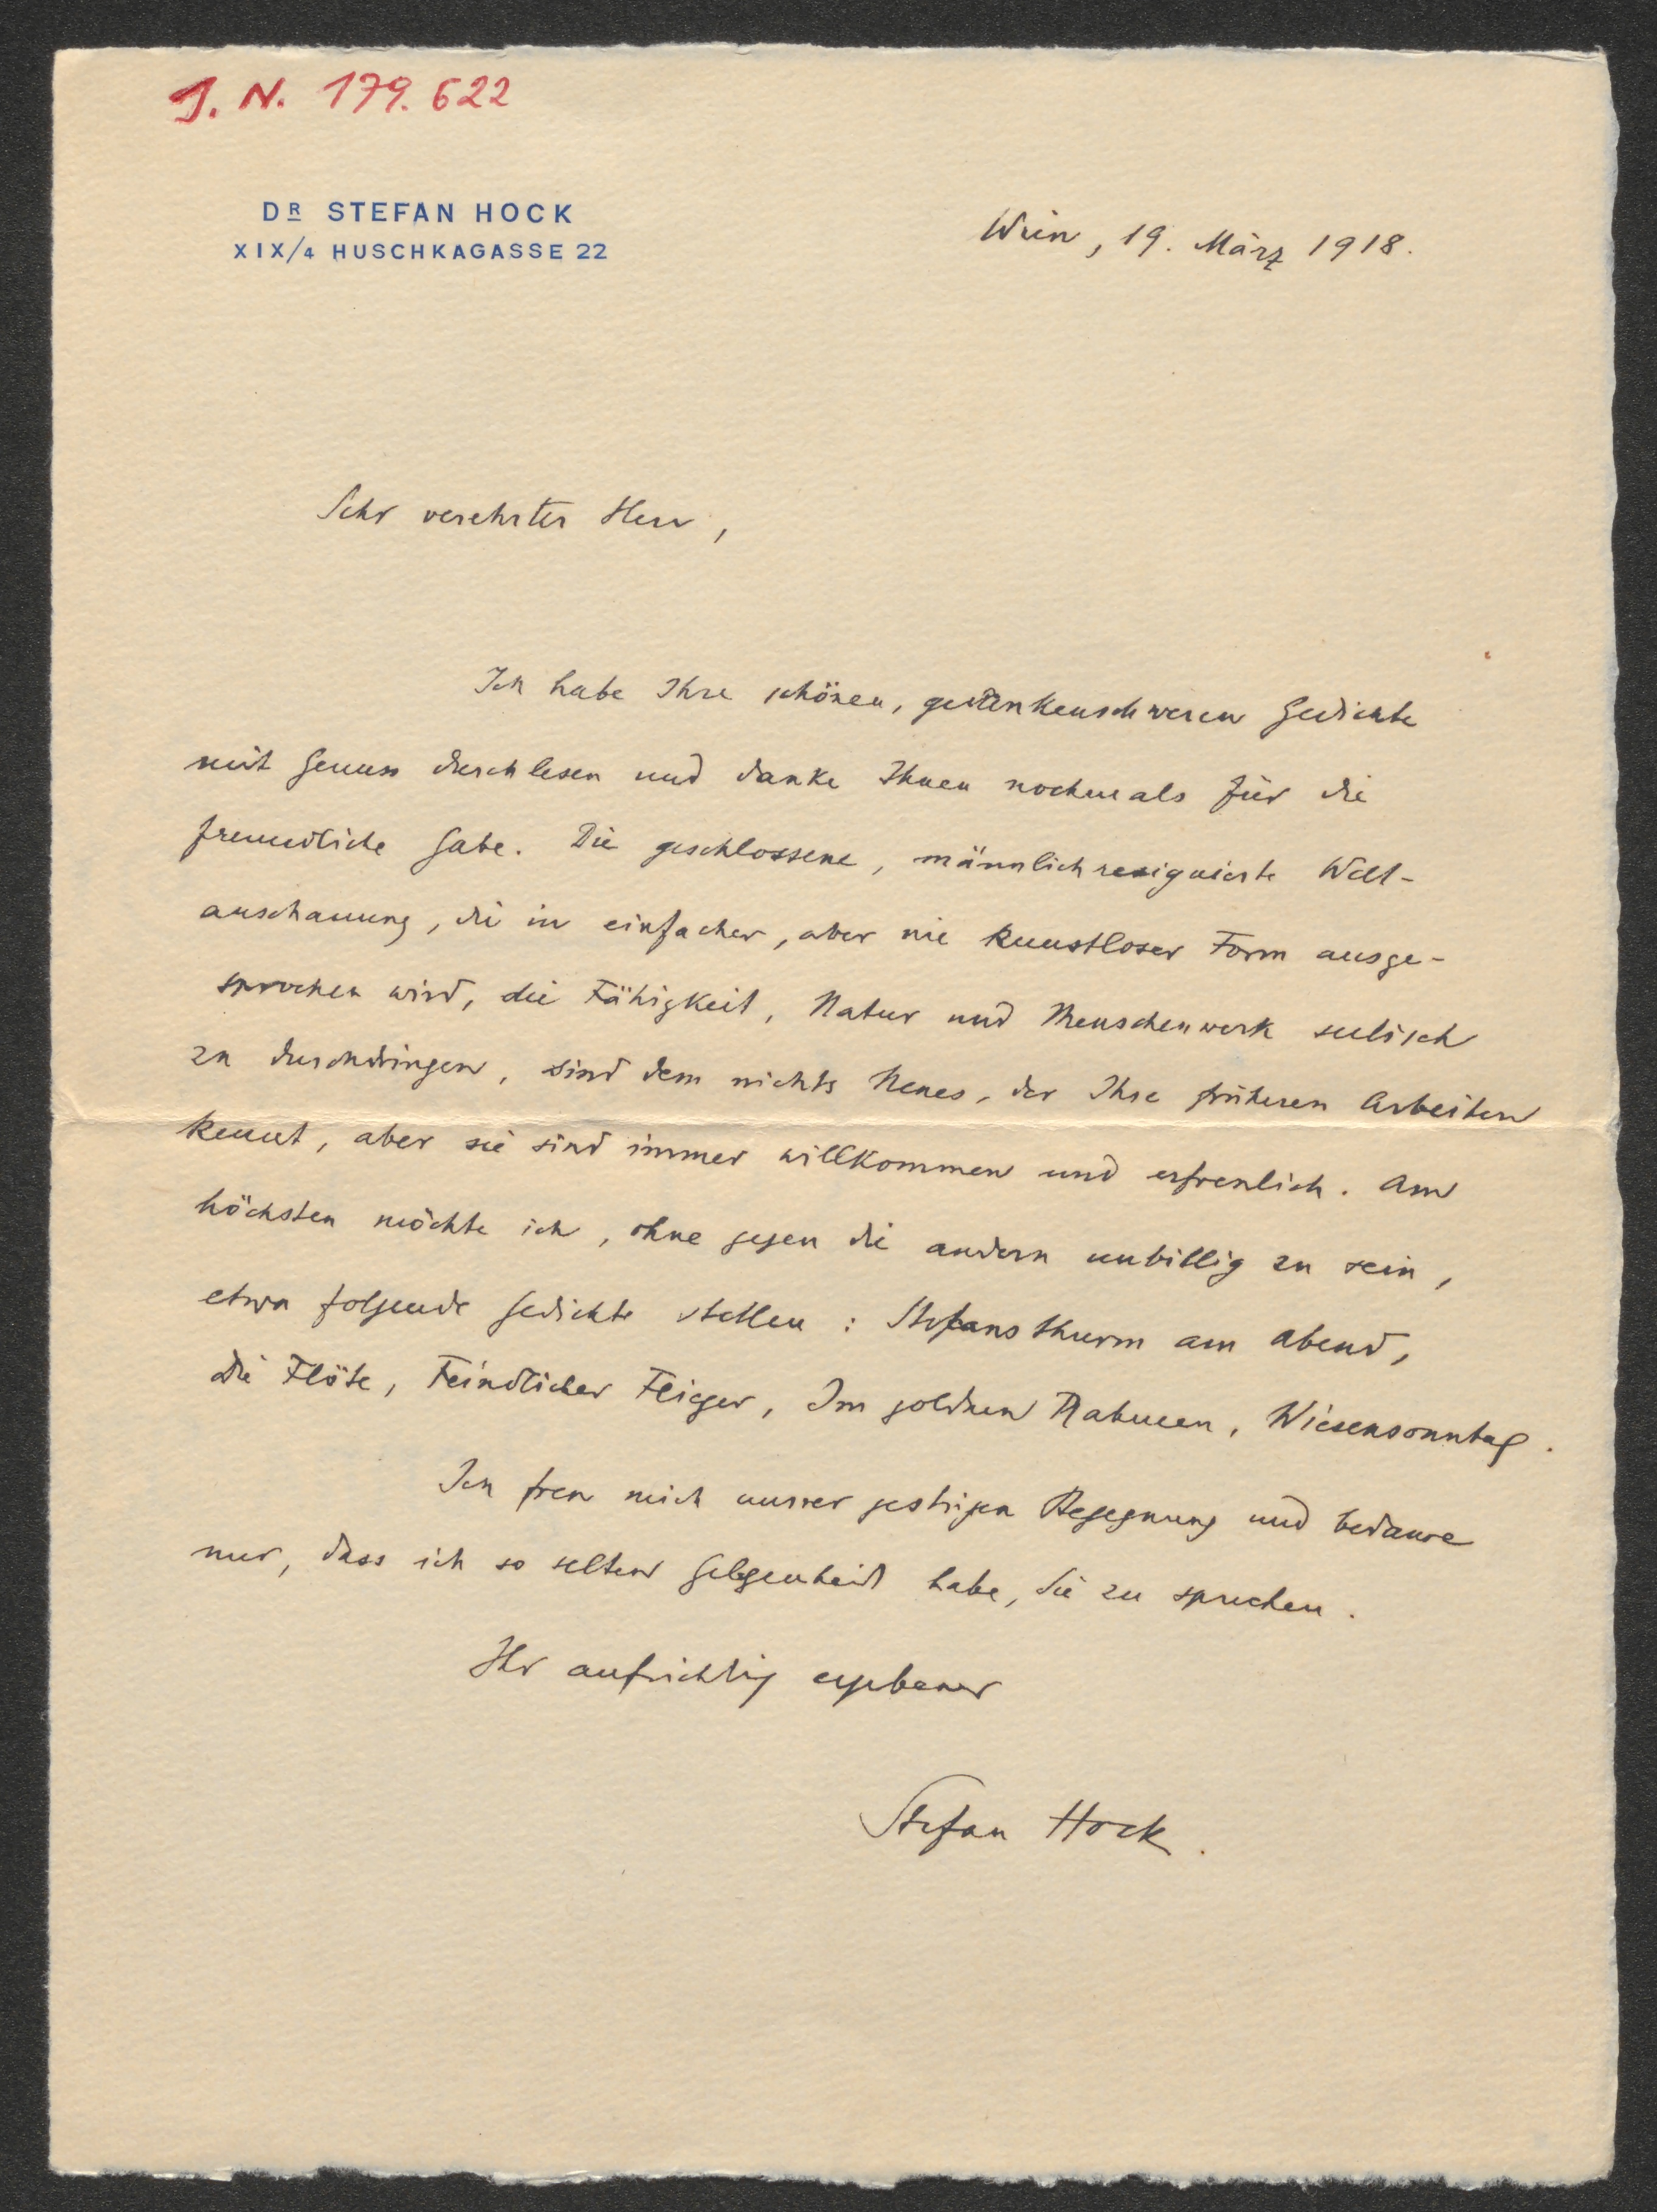 J. N. 179.622
DR STEFAN HOCK
XIX/4 HUSCHKAGASSE 22
Wien, 19. März 1918.
Sehr verehrter Herr,
Ich habe Ihre schönen, gedankenschweren Gedichte
mit Genuss durchlesen und danke Ihnen nochmals für die
freundliche Gabe. Die geschlossene, männlich resignierte Welt-
anschauung, die in einfacher, aber nie kunstloser Form ausge-
sprochen wird, die Fähigkeit, Natur und Menschenwerk seelisch
zu durchdringen, sind dem nichts Neues, der Ihre früheren Arbeiten
kennt, aber sie sind immer willkommen und erfreulich. Am
höchsten möchte ich, ohne gegen die andern unbillig zu sein,
etwa folgende Gedichte stellen: Stefansthurm am Abend,
Die Flöte, Feindlicher Flieger, Im goldnen Rahmen, Wiesensonntag.
Ich freu mich unsrer gestrigen Begegnung und bedaure
nur, dass ich so selten Gelegenheit habe, Sie zu sprechen.
Ihr aufrichtig ergebener
Stefan Hock.